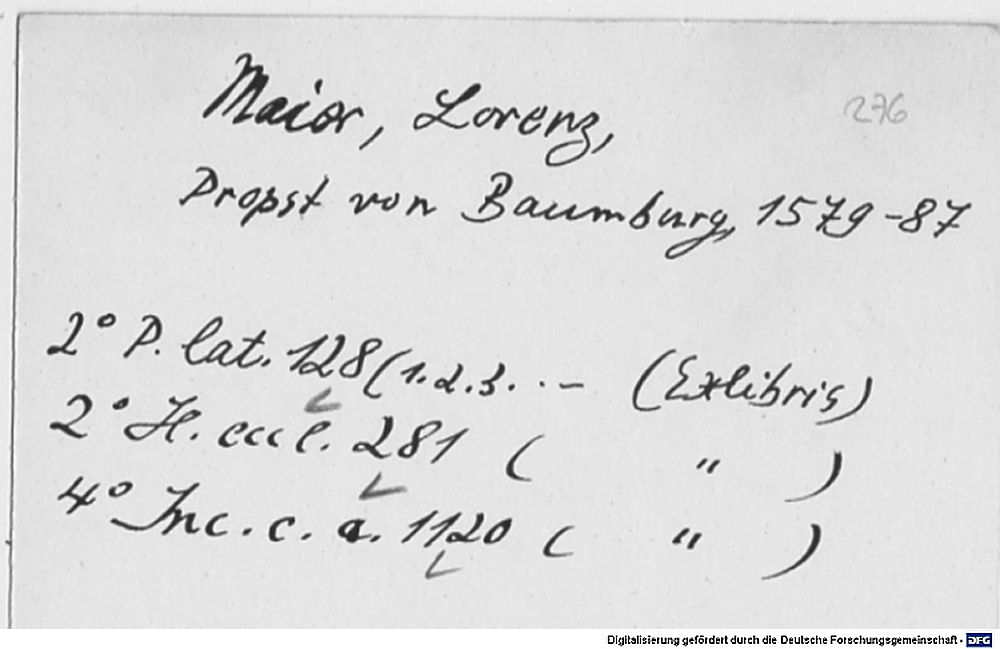 276
Maior, Lorenz,
Propst von Baumburg, 1579-87
2° P. lat. 128 (1.2.3. . - (Exlibris)
2° H. eccl. 281 ( " )
4° Inc. c. a. 1120 ( " )
Digitalisierung gefördert durch die Deutsche Forschungsgemeinschaft - DFG